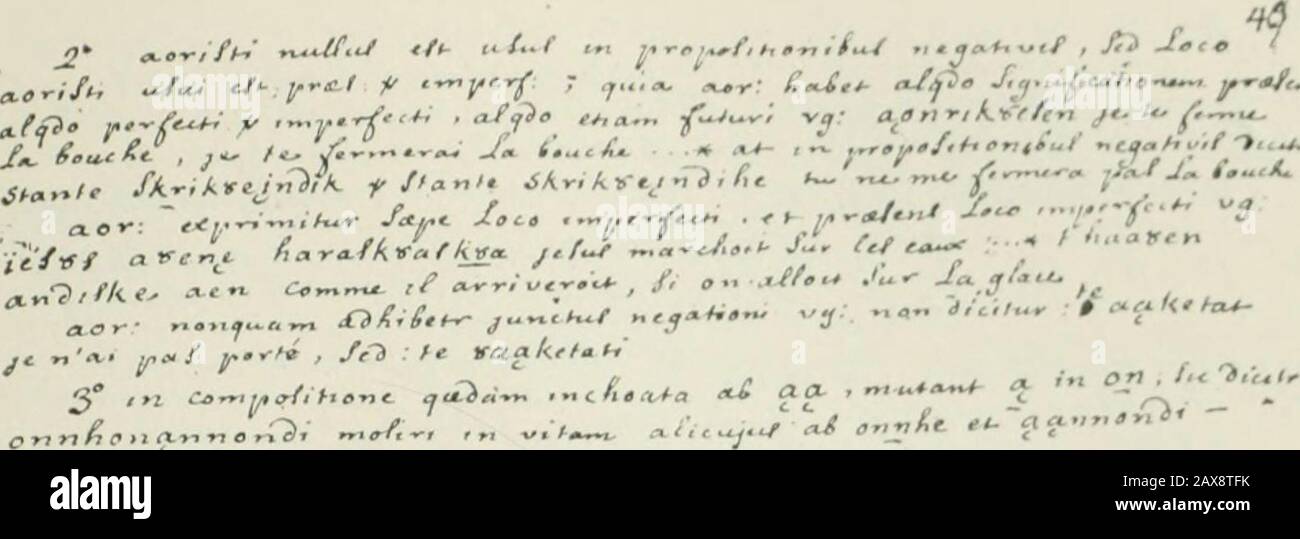 49
2° aoristi nullus est usus in propositionibus negativis, sed Loco
aoristi usui est: præs. & imperf: ; quia aor: habet alqdo significationem præsen
alqdo perfecti & imperfecti, alqdo etiam futuri vg: aonrik8elen je te ferme
La bouche, je te fermerai La bouche ...* at in propositionibus negativis
stante Skrik8ejndik & stante Skrik8ejndihe tu ne me fermera pas La bouche
aor: exprimitur sæpe Loco imperfecti. et præsens Loco imperfecti vg:
ies8s a8enę haralk8alk8a jesus marchoit sur les eaux :...* t'haa8en
andiske aen comme il arriveroit, si on alloit sur La glace
aor: nonquam adhibetr junctus negationi vg: non dicitur : te aąketat
je n'ai pas porté, sed : te 8aąketati
3° in compositione quædam inchoata ab ąą, mutant ą in on, sic
onnhonąnnondi moliri in vitam alicujus ab onnhe et ąąnnondi —
alamy
a
alamy
Image ID: 2AX8TFK
www.alamy.com